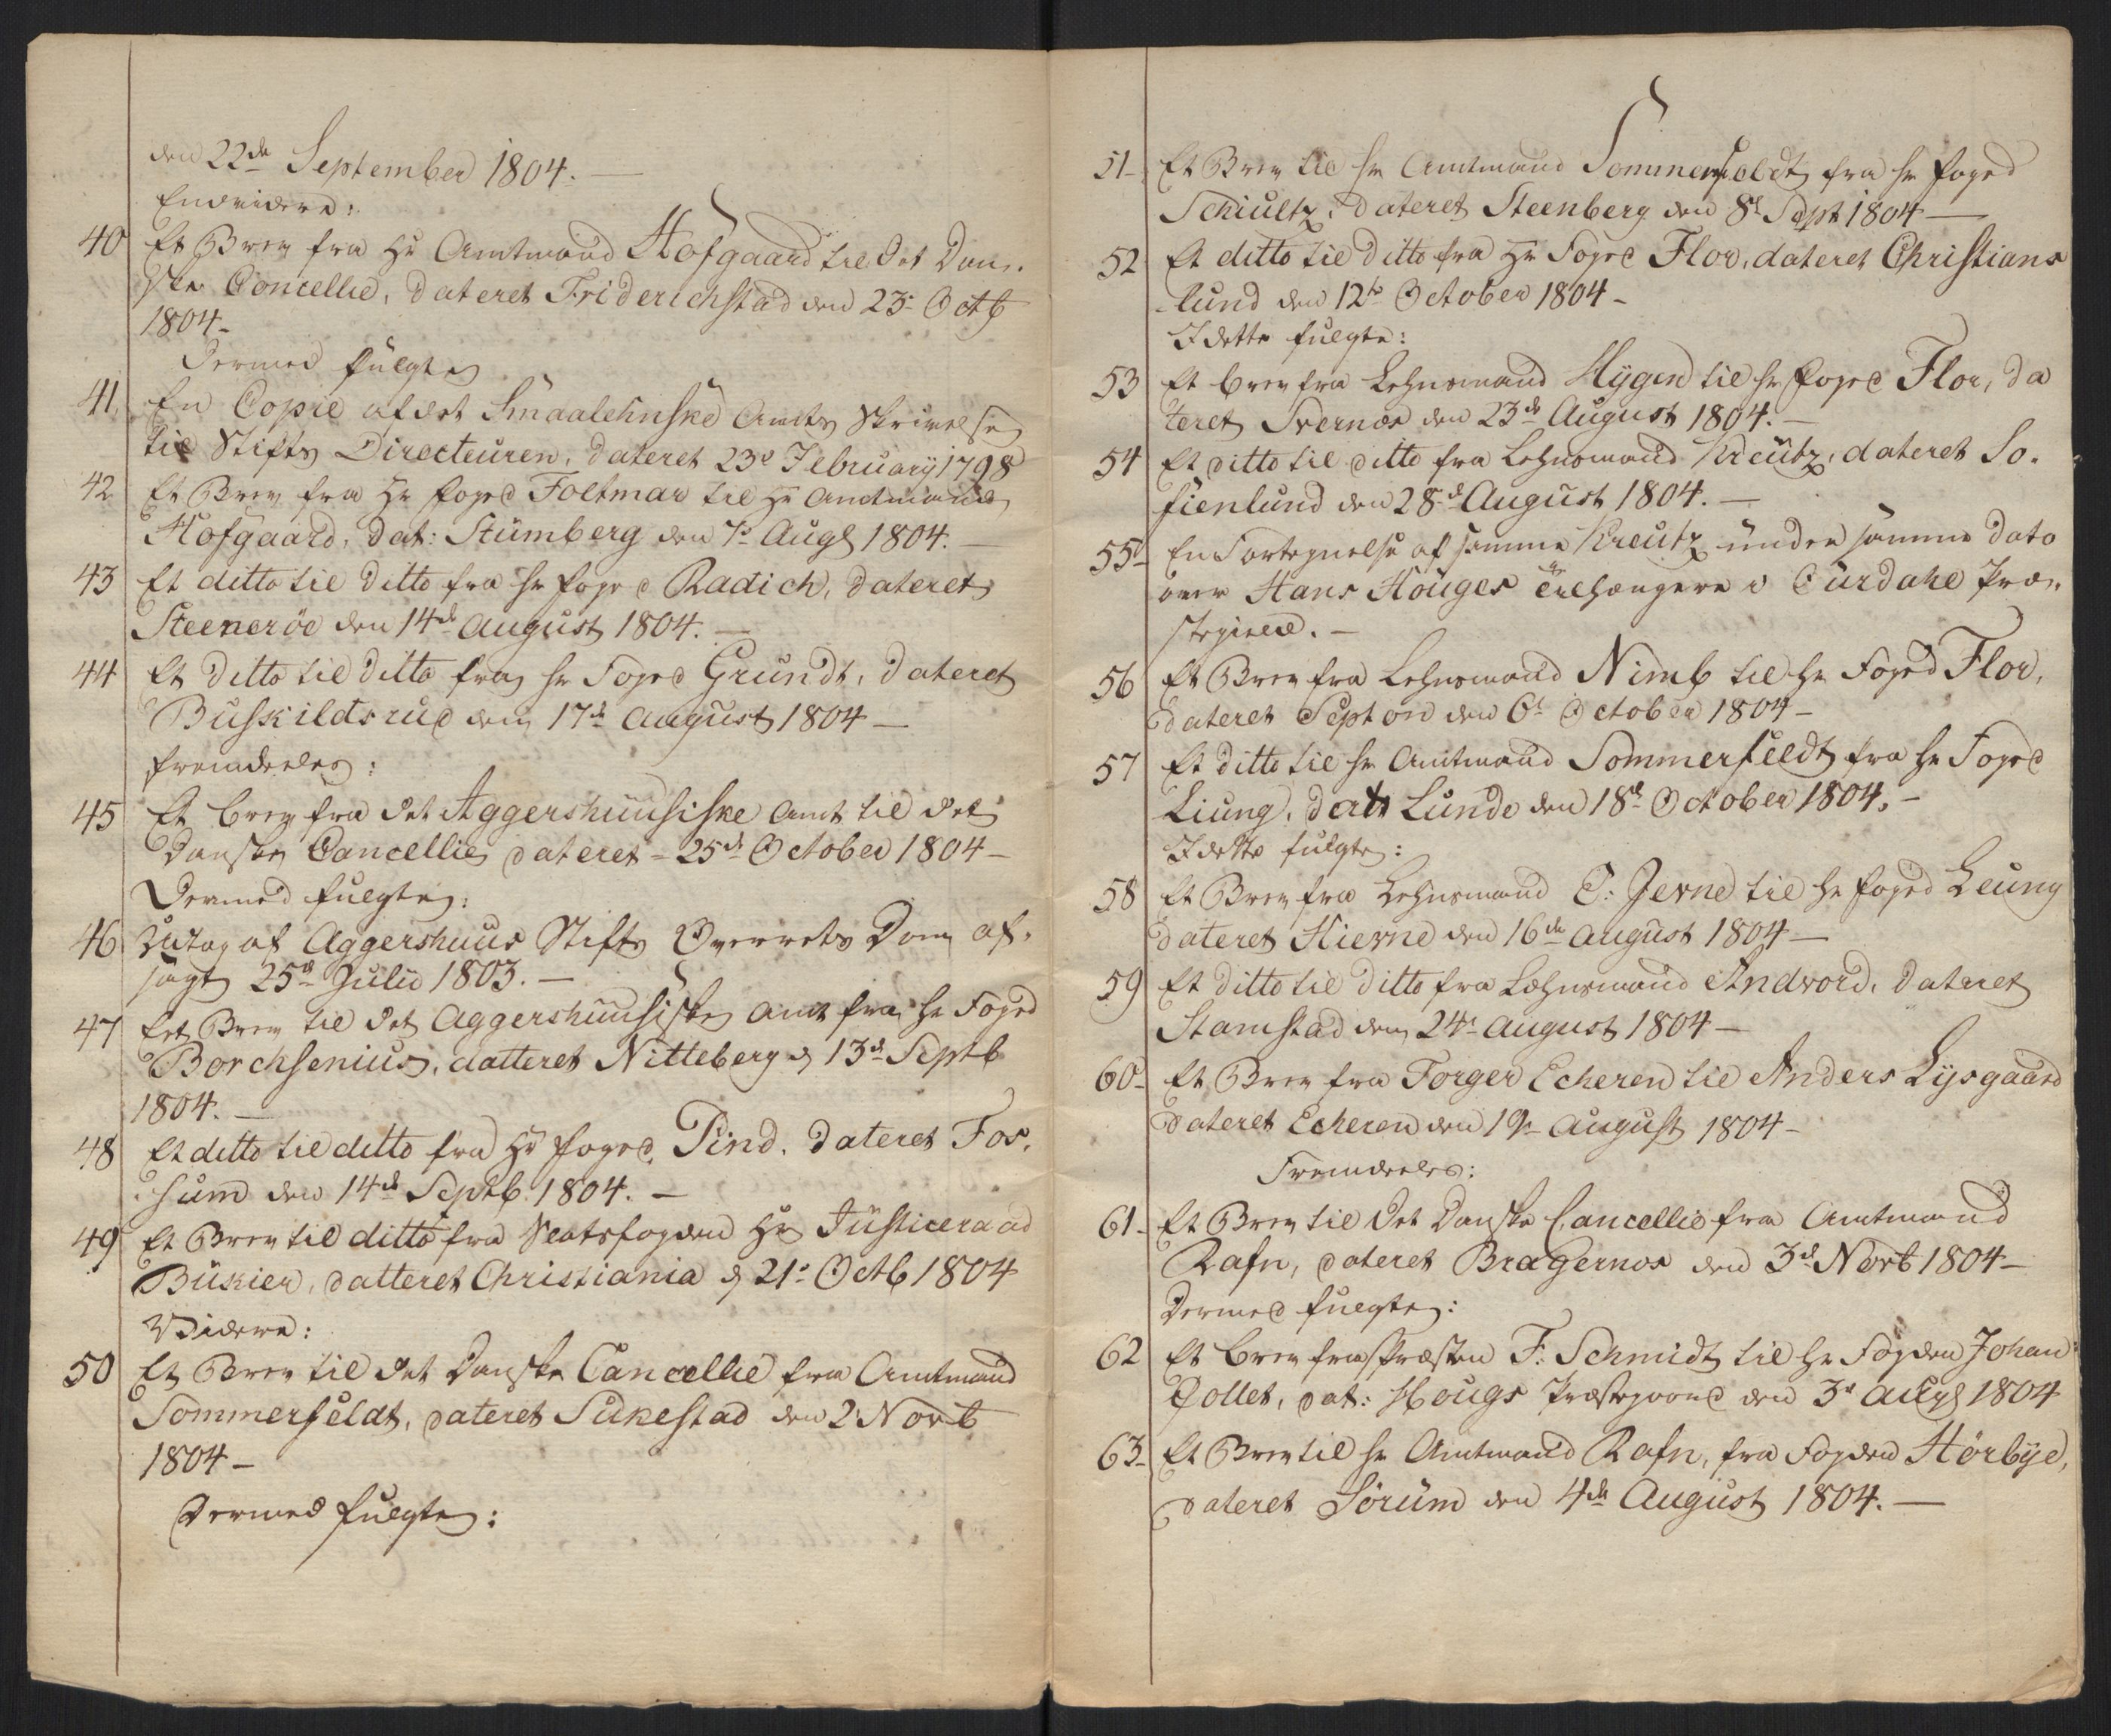 den 22de September 1804. —
Endvidere:
40 Et Brev fra Hr Amtmand Hofgaard til Det Dan-
ske Cancellie, dateret Friderichstad den 23de Octb
1804 –
Dermed fulgte
41 En Copie af det Smaalehnske Amts Skrivelse
til Stifts Directeuren, dateret 23de February 1798
42 Et Brev fra Hr Foged Foltmar til Hr Amtmand
Hofgaard, dat: Stumberg den 7de Aug 1804. —
43 Et ditto til ditto fra Hr Foged Radich, dateret
Steenerøe den 14de August 1804. —
44 Et ditto til ditto fra Hr Foged Grundt, dateret
Buskildsrud den 17de August 1804 —
fremdeeles:
45 Et brev fra det Aggershuusiske Amt til det
Danske Cancellie dateret – 25de October 1804 –
Dermed fulgte:
46 Udtog af Aggershuus Stifts Overrets Dom af-
sagt 25de Julii 1803. —
47 Eet Brev til det Aggershuusiske Amt fra Hr Foged
Borchsenius, datteret Nitteberg d 13de Septb
1804. —
48 Et ditto til ditto fra Hr Foged Pind. dateret Fos-
sum den 14de Septb. 1804. —
49 Et Brev til ditto fra Slotsfogden Hr Justiceraad
Bükier, datteret Christiania d 21de Octb 1804
Videre:
50 Et Brev til det Danske Cancellie fra Amtmand
Sommerfeldt, dateret Sukestad den 2 Novb
1804 –
Dermed fulgte:
51 – Et Brev til Hr Amtmand Sommerfeldt fra Hr Foged
Schiultz, dateret Steenberg den 8de Sept 1804 —
52 Et ditto til ditto fra Hr Foged Flor, dateret Christians
lund den 12te October 1804 –
I dette fulgte:
53 Et brev fra Lehnsmand Hygen til Hr Foged Flor, da
teret Svernæs den 23de August 1804. —
54 Et ditto til ditto fra Lehnsmand Kreutz, dateret So-
fienlund den 28de August 1804. —
55 – En Fortegnelse af samme Kreutz under samme Dato
over Hans Houges Tilhængere i Eurdahl Præ-
stegield. —
56 Et Brev fra Lehnsmand Nimb til Hr Foged Flor,
dateret Septon den 6te October 1804 –
57 Et ditto til Hr Amtmand Sommerfeldt fra Hr Foged
Liung, dat Lunde den 18de October 1804. –
I dette fulgte:
58 Et Brev fra Lehnsmand C: Jerne til Hr Foged Leung
dateret Hierne den 16de August 1804 —
59 Et ditto til ditto fra Lehnsmand Andvord, dateret
Stamstad den 24de August 1804 —
60 – Et Brev fra Torger Echeren til Anders Lysgaard
dateret Echeren den 19de August 1804 –
Fremdeeles:
61 – Et Brev til Det Danske Cancellie fra Amtmand
Rafn, dateret Bragernæs den 3de Novb 1804 –
Dermed fulgte:
62 Et brev fra Præsten F: Schmidt til Hr Fogden Johan
Collet, dat: Hougs Præstegaard den 3de Aug 1804
63 – Et Brev til Hr Amtmand Rafn, fra Fogden Hørbye,
dateret Sørum den 4de August 1804. —